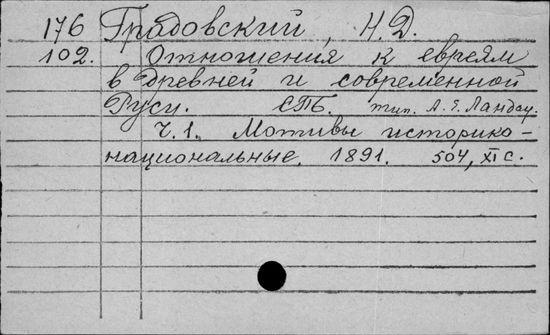 176 Градовский, Н.Д.
102. Отношения к евреям
в древней и современной
Руси. СПБ. тип. А.Е. Ландау.
Ч.1. Мотивы историко-
национальные. 1891. 504, XI с.